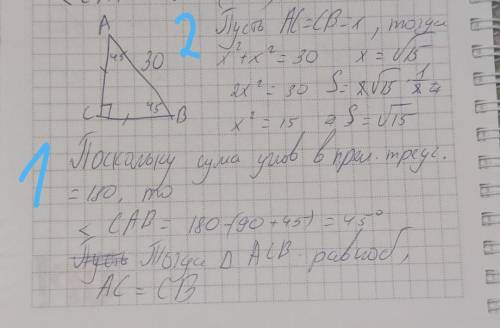 A
45
30
C
45
B
2
Пусть AC=CB=x, тогда
x²+x²=30 x=√15
2x²=30 S=
x²=15 S=√15
1
Поскольку сума углов в прям. треуг.
=180, то
< CAB = 180-(90+45)=45°
Пусть Тогда △ ACB - равноб,
AC = CB